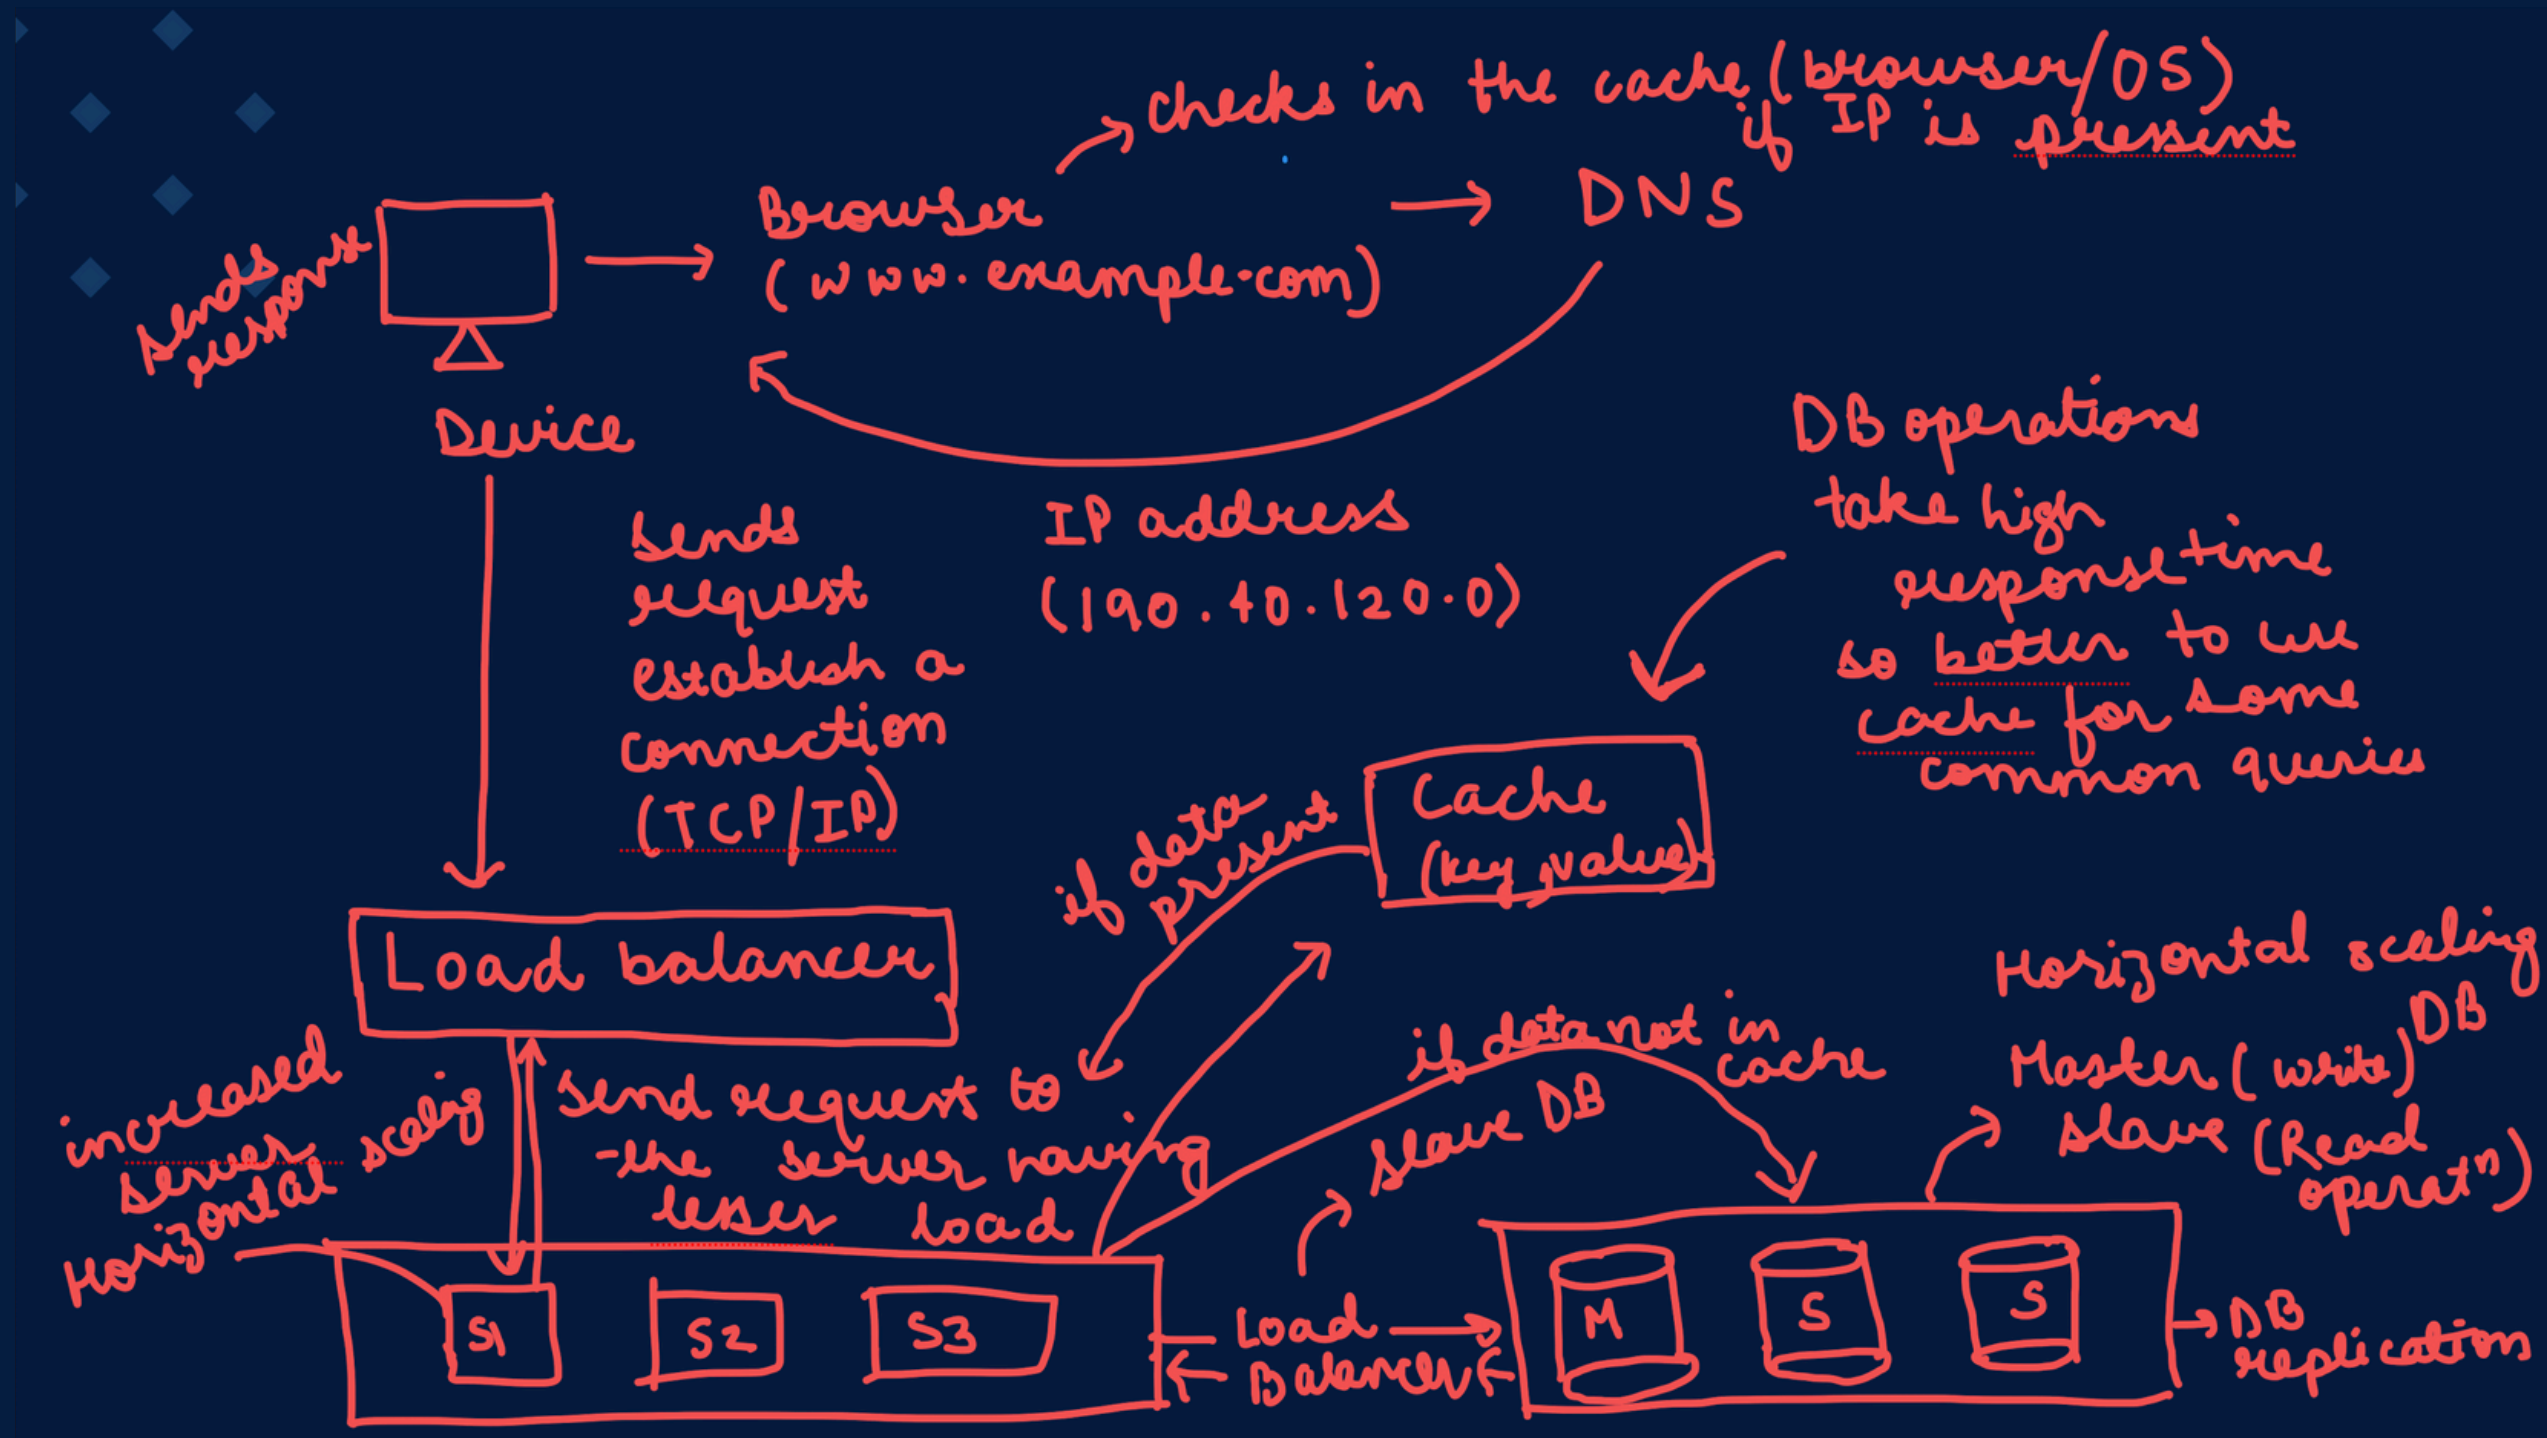 checks in the cache (browser/OS)
if IP is present
Browser
(www.example.com)
DNS
sends
response
Device
IP address
(190.40.120.0)
sends
request
establish a
connection
(TCP/IP)
DB operations
take high
response time
so better to use
cache for some
common queries
Cache
(key, value)
if data
present
Load balancer
increased
server
Horizontal scaling
send request to
the server having
lesser load
if data not in
cache
slave DB
Horizontal scaling
DB
Master (write)
slave (Read
operatn)
S1
S2
S3
Load
Balancer
M
S
S
DB
replication